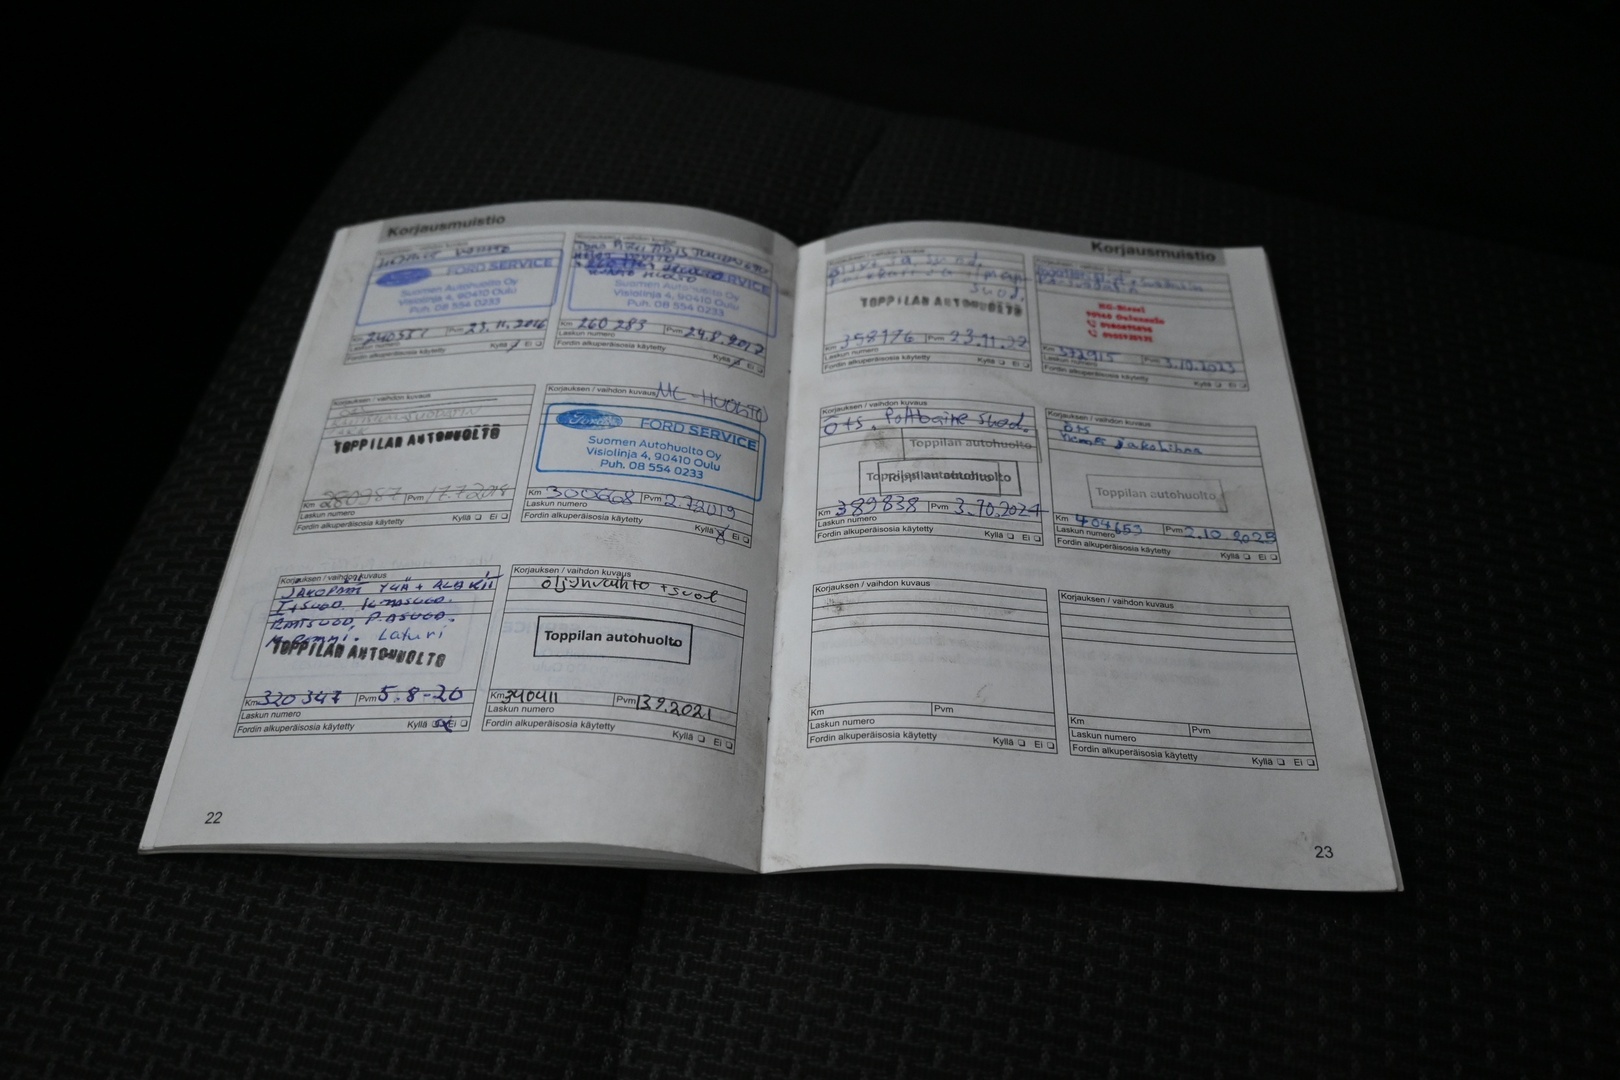 Korjausmuistio
FORD SERVICE
Suomen Autohuolto Oy
Visiolinja 4, 90410 Oulu
Puh. 08 554 0233
Pvm 23.11.2016
Laskun numero
Fordin alkuperäisosia käytetty
Kyllä Ei
FORD SERVICE
Suomen Autohuolto Oy
Visiolinja 4, 90410 Oulu
Puh. 08 554 0233
Km 260 283 Pvm 24.8.2017
Laskun numero
Fordin alkuperäisosia käytetty
Kyllä Ei
Korjauksen / vaihdon kuvaus
TOPPILAN AUTOHUOLTO
Km 280387 Pvm 17.7.2018
Laskun numero
Fordin alkuperäisosia käytetty
Kyllä Ei
Korjauksen / vaihdon kuvaus MC-HUOLTO
Ford FORD SERVICE
Suomen Autohuolto Oy
Visiolinja 4, 90410 Oulu
Puh. 08 554 0233
Km 300668 Pvm 2.7.2019
Laskun numero
Fordin alkuperäisosia käytetty
Kyllä Ei
Korjauksen / vaihdon kuvaus
JAKOPÄÄ YLÄ + ALAKII
ILMASUOD.
RAITSUOD, P.ASUOD.
Laturi
TOPPILAN AUTOHUOLTO
Km 320 347 Pvm 5.8-20
Laskun numero
Fordin alkuperäisosia käytetty
Kyllä Ei
Korjauksen / vaihdon kuvaus
öljynvaihto + suod
Toppilan autohuolto
Km 340411 Pvm 13.9.2021
Laskun numero
Fordin alkuperäisosia käytetty
Kyllä Ei
22
Korjausmuistio
TOPPILAN AUTOHUOLTO
Km 358176 Pvm 23.11.22
Laskun numero
Fordin alkuperäisosia käytetty
Kyllä Ei
Km 372915 Pvm 3.10.2023
Laskun numero
Fordin alkuperäisosia käytetty
Kyllä Ei
Korjauksen / vaihdon kuvaus
ö+s. Polttoaine suod.
Toppilan autohuolto
Toppilan autohuolto
Km 389838 Pvm 3.10.2024
Laskun numero
Fordin alkuperäisosia käytetty
Kyllä Ei
Korjauksen / vaihdon kuvaus
ö+s
jakohihna
Toppilan autohuolto
Km 404653 Pvm 2.10.2025
Laskun numero
Fordin alkuperäisosia käytetty
Kyllä Ei
Korjauksen / vaihdon kuvaus
Km Pvm
Laskun numero
Fordin alkuperäisosia käytetty
Kyllä Ei
Korjauksen / vaihdon kuvaus
Km Pvm
Laskun numero
Fordin alkuperäisosia käytetty
Kyllä Ei
23